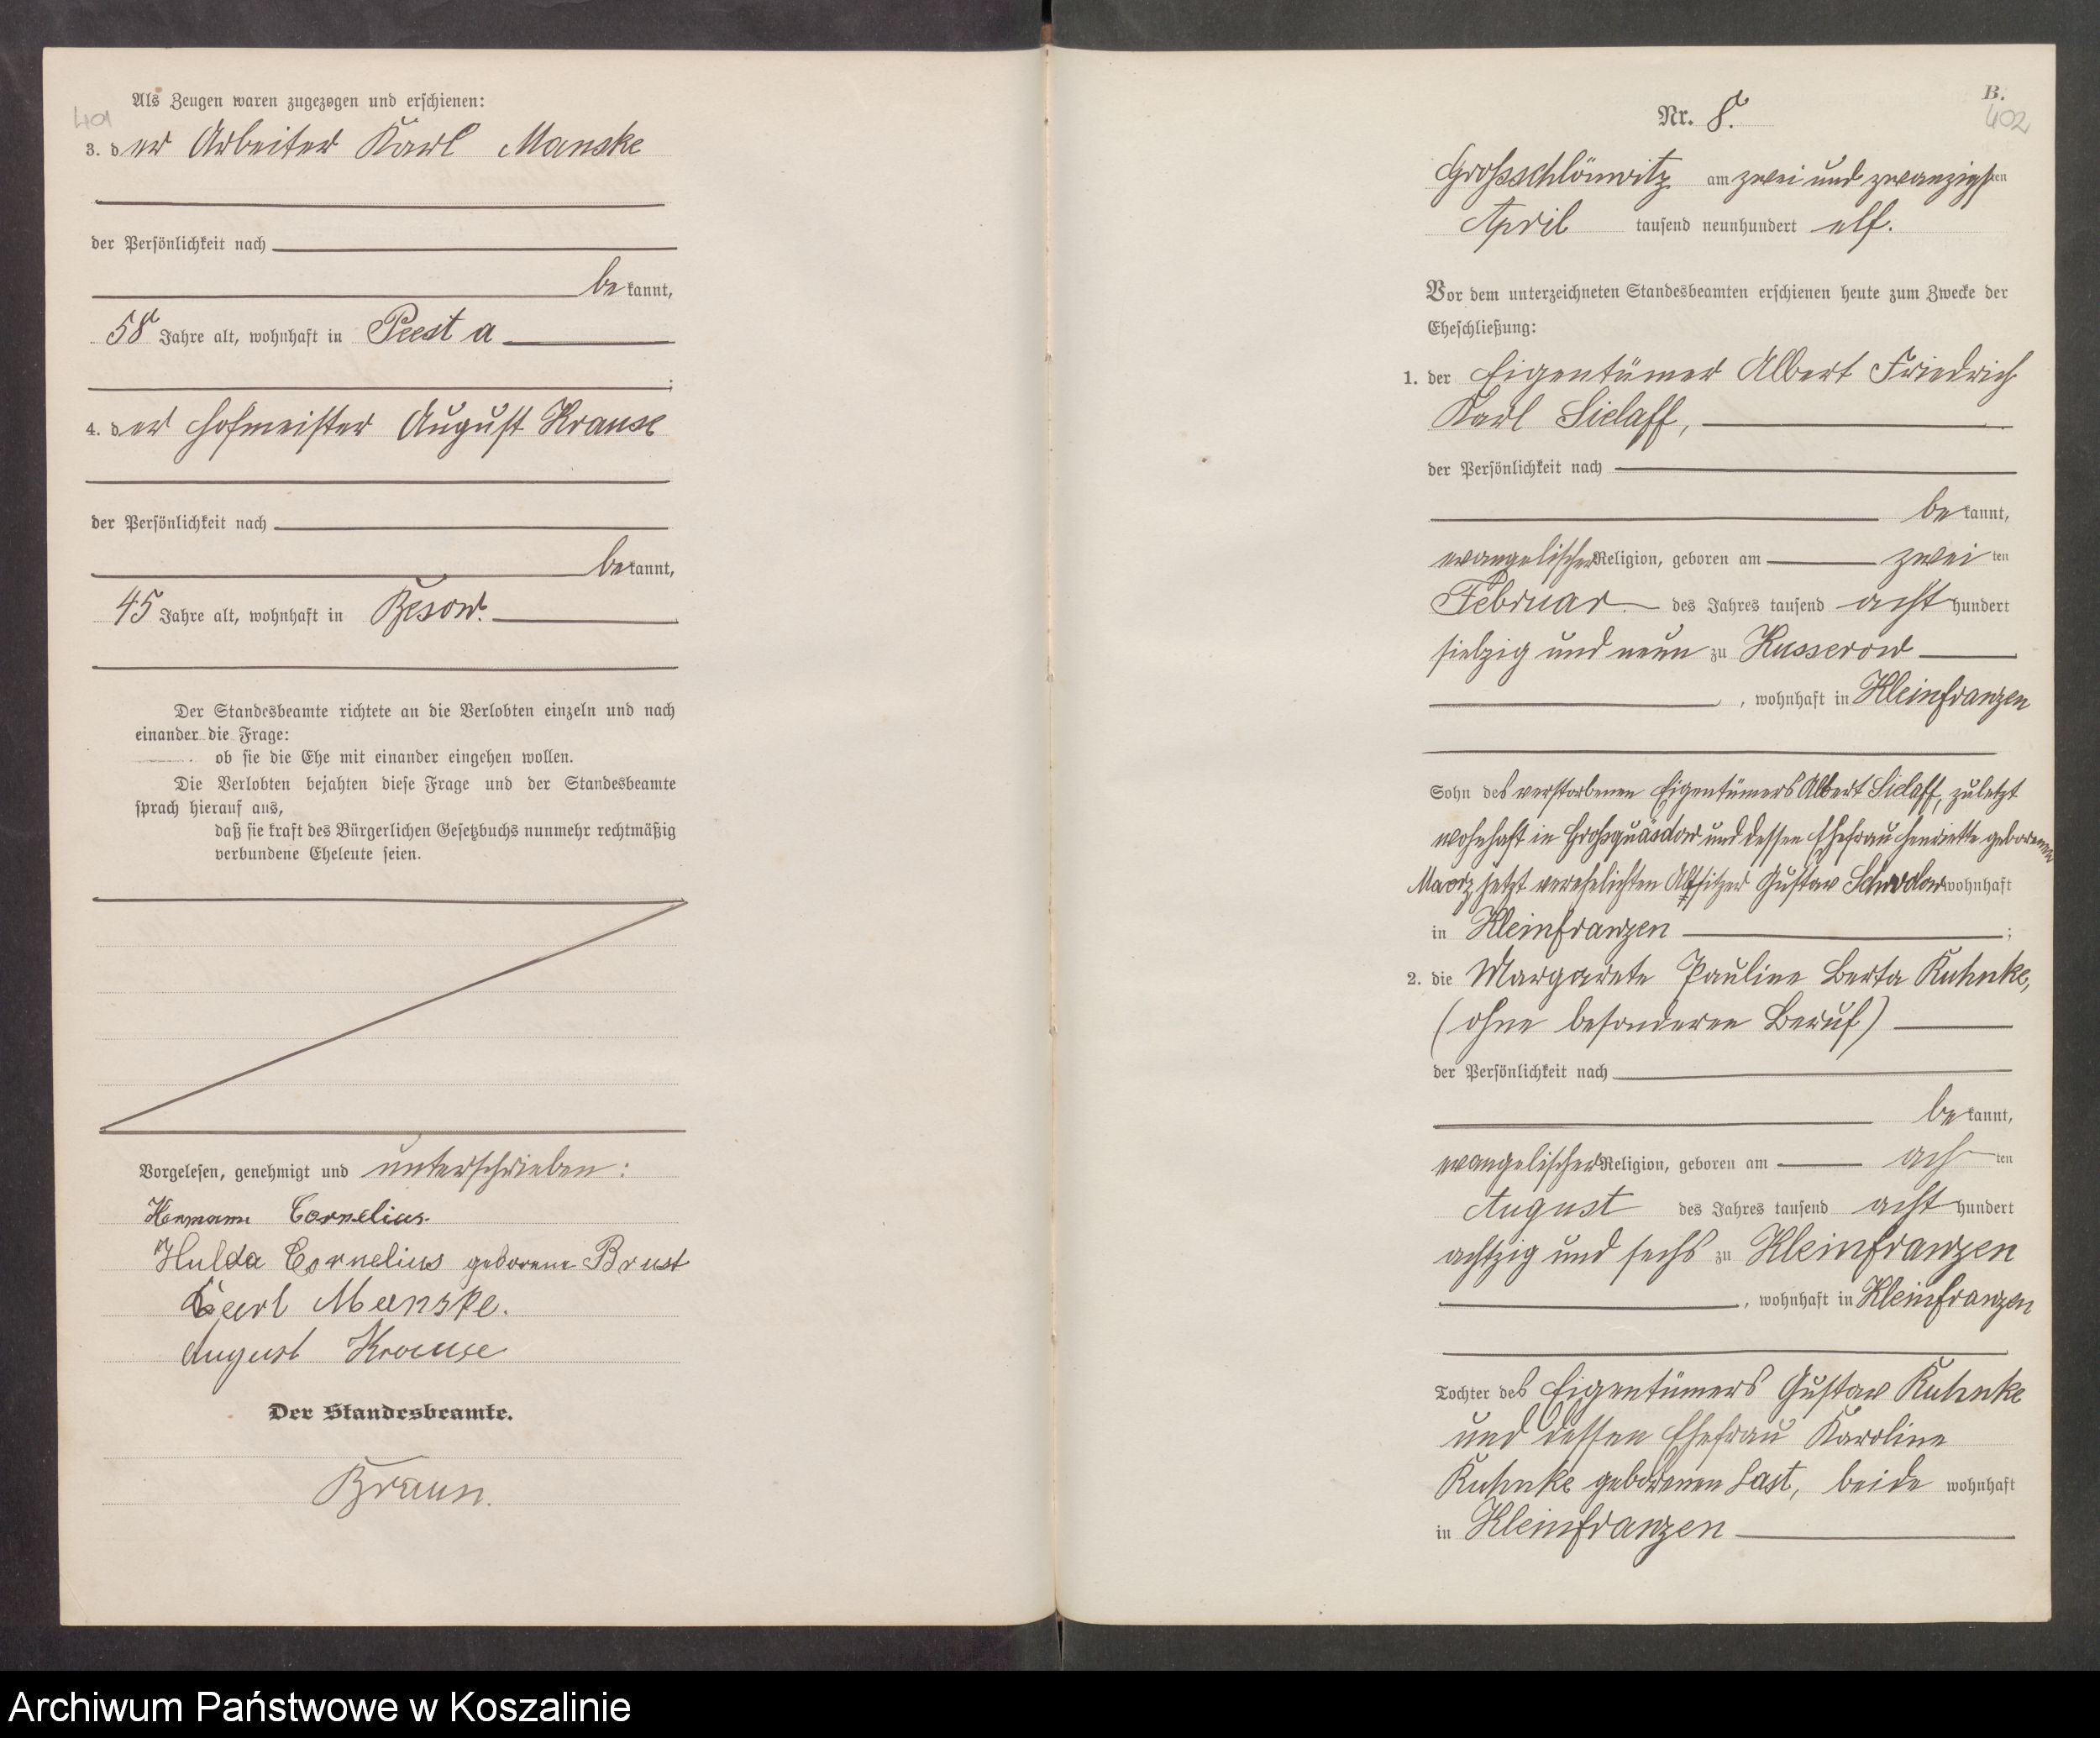 Als Zeugen waren zugezogen und erschienen:
401
3. der Arbeiter Karl Manske
der Persönlichkeit nach
bekannt,
58 Jahre alt, wohnhaft in Peest a
;
4. der Hofmeister August Krause
der Persönlichkeit nach
bekannt,
45 Jahre alt, wohnhaft in Besow.
Der Standesbeamte richtete an die Verlobten einzeln und nach
einander die Frage:
ob sie die Ehe mit einander eingehen wollen.
Die Verlobten bejahten diese Frage und der Standesbeamte
sprach hierauf aus,
daß sie kraft des Bürgerlichen Gesetzbuchs nunmehr rechtmäßig
verbundene Eheleute seien.
Vorgelesen, genehmigt und unterschrieben:
Hermann Cornelius.
Hulda Cornelius geborene Brust
Carl Manske.
August Krause
Der Standesbeamte.
Braun.
B.
402
Nr. 8.
Großschlönwitz am zwei und zwanzigsten
April tausend neunhundert elf.
Vor dem unterzeichneten Standesbeamten erschienen heute zum Zwecke der
Eheschließung:
1. der Eigentümer Albert Friedrich
Karl Sielaff,
der Persönlichkeit nach
bekannt,
evangelischer Religion, geboren am zweiten
Februar des Jahres tausend achthundert
siebzig und neun zu Kusserow
, wohnhaft in Kleinfranzen
Sohn des verstorbenen Eigentümers Albert Sielaff, zuletzt
wohnhaft in Großquäsdow und dessen Ehefrau Henriette geborenen
jetzt verehelichten Altsitzer Gustav wohnhaft
in Kleinfranzen ;
2. die Margarete Pauline Berta Kuhnke,
(ohne besonderen Beruf)
der Persönlichkeit nach
bekannt,
evangelischer Religion, geboren am achten
August des Jahres tausend achthundert
achtzig und sechs zu Kleinfranzen
, wohnhaft in Kleinfranzen
Tochter des Eigentümers Gustav Kuhnke
und dessen Ehefrau Karoline
Kuhnke geborenen Last, beide wohnhaft
in Kleinfranzen
Archiwum Państwowe w Koszalinie